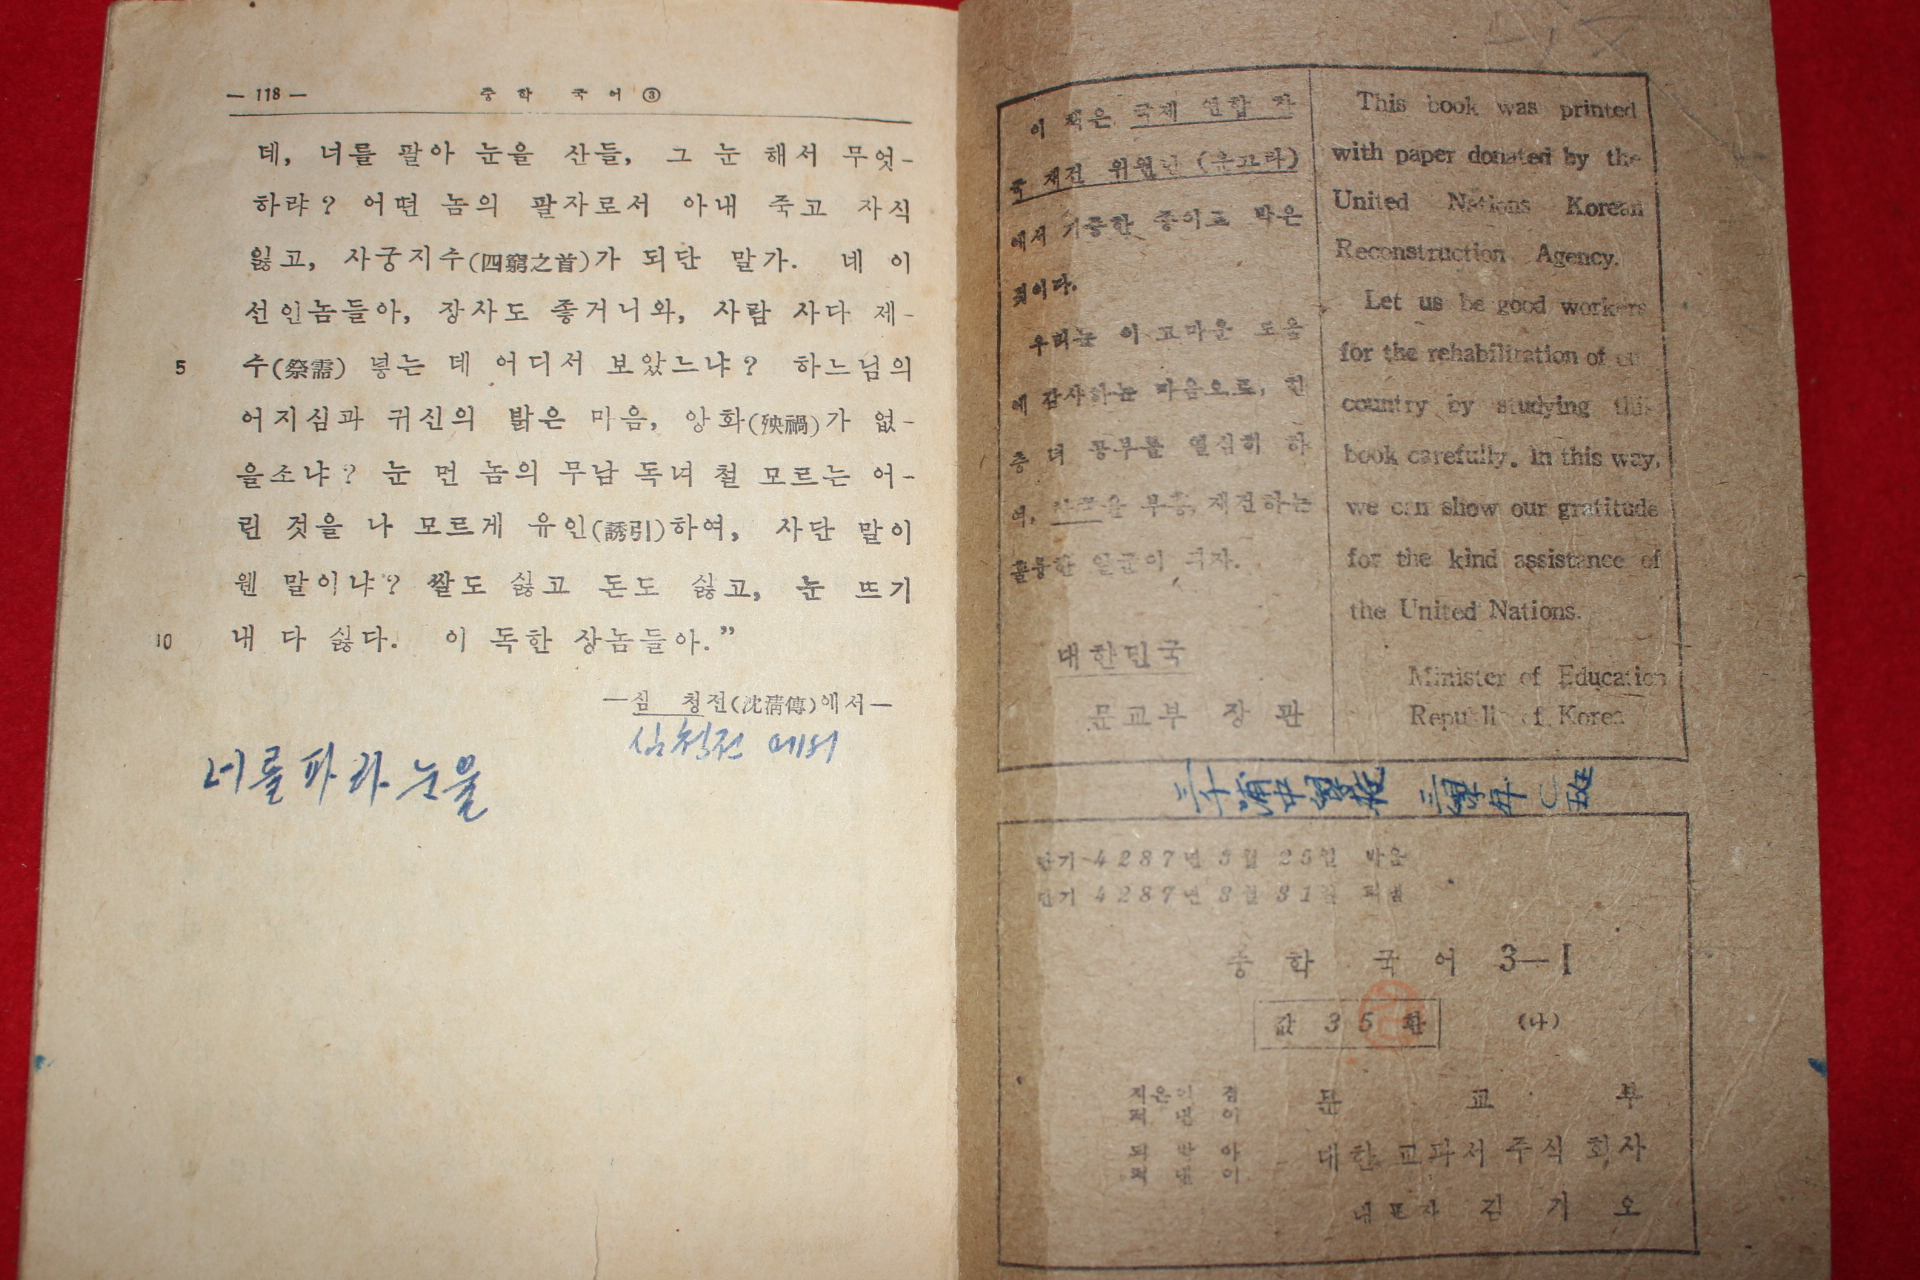 — 118 —
중학 국어 ③
데, 너를 팔아 눈을 산들, 그 눈 해서 무엇-
하랴? 어떤 놈의 팔자로서 아내 죽고 자식
잃고, 사궁지수(四窮之首)가 되단 말가. 네 이
선인놈들아, 장사도 좋거니와, 사람 사다 제-
5 수(祭需) 넣는 데 어디서 보았느냐? 하느님의
어지심과 귀신의 밝은 마음, 앙화(殃禍)가 없-
을소냐? 눈 먼 놈의 무남 독녀 철 모르는 어-
린 것을 나 모르게 유인(誘引)하여, 사단 말이
웬 말이냐? 쌀도 싫고 돈도 싫고, 눈 뜨기
10 내 다 싫다. 이 독한 상놈들아.”
—심 청전(沈淸傳)에서—
심청전 에서
너를 파라 눈을
이 책은 국제 연합 한
국 재건 위원단 (운끄라)
에서 기증한 종이로 박은
것이다.
우리는 이 고마운 도움
에 감사하는 마음으로, 한
층 더 공부를 열심히 하
여, 한국을 부흥, 재건하는
훌륭한 일군이 되자.
대한민국
문교부 장관
This book was printed
with paper donated by the
United Nations Korean
Reconstruction Agency.
Let us be good workers
for the rehabilitation of our
country by studying this
book carefully. In this way,
we can show our gratitude
for the kind assistance of
the United Nations.
Minister of Education
Republic of Korea
三學年 C 班
단기 4287년 3월 25일 박음
단기 4287년 3월 31일 펴냄
중학 국어 3—I
값 35환 (나)
지은이 겸
펴낸이
문교부
박아
펴낸이
대한 교과서 주식 회사
대표자 김기오